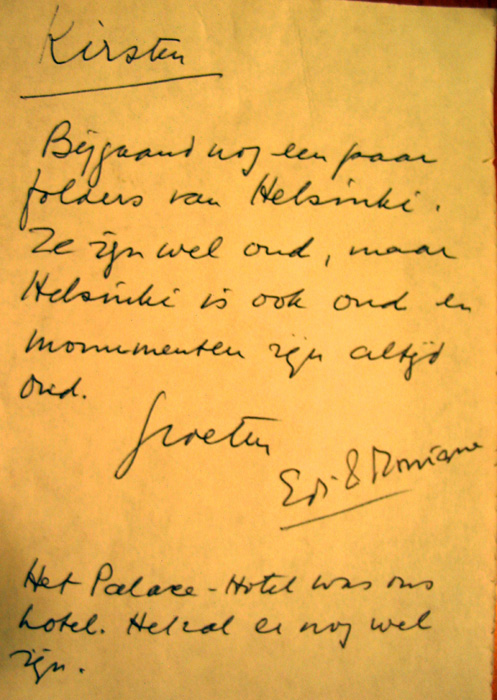 Kirsten
Bijgaand nog een paar
folders van Helsinki.
Ze zijn wel oud, maar
Helsinki is ook oud en
monumenten zijn altijd
oud.
Groeten
Edi & Monique
Het Palace-Hotel was ons
hotel. Het zal er nog wel
zijn.